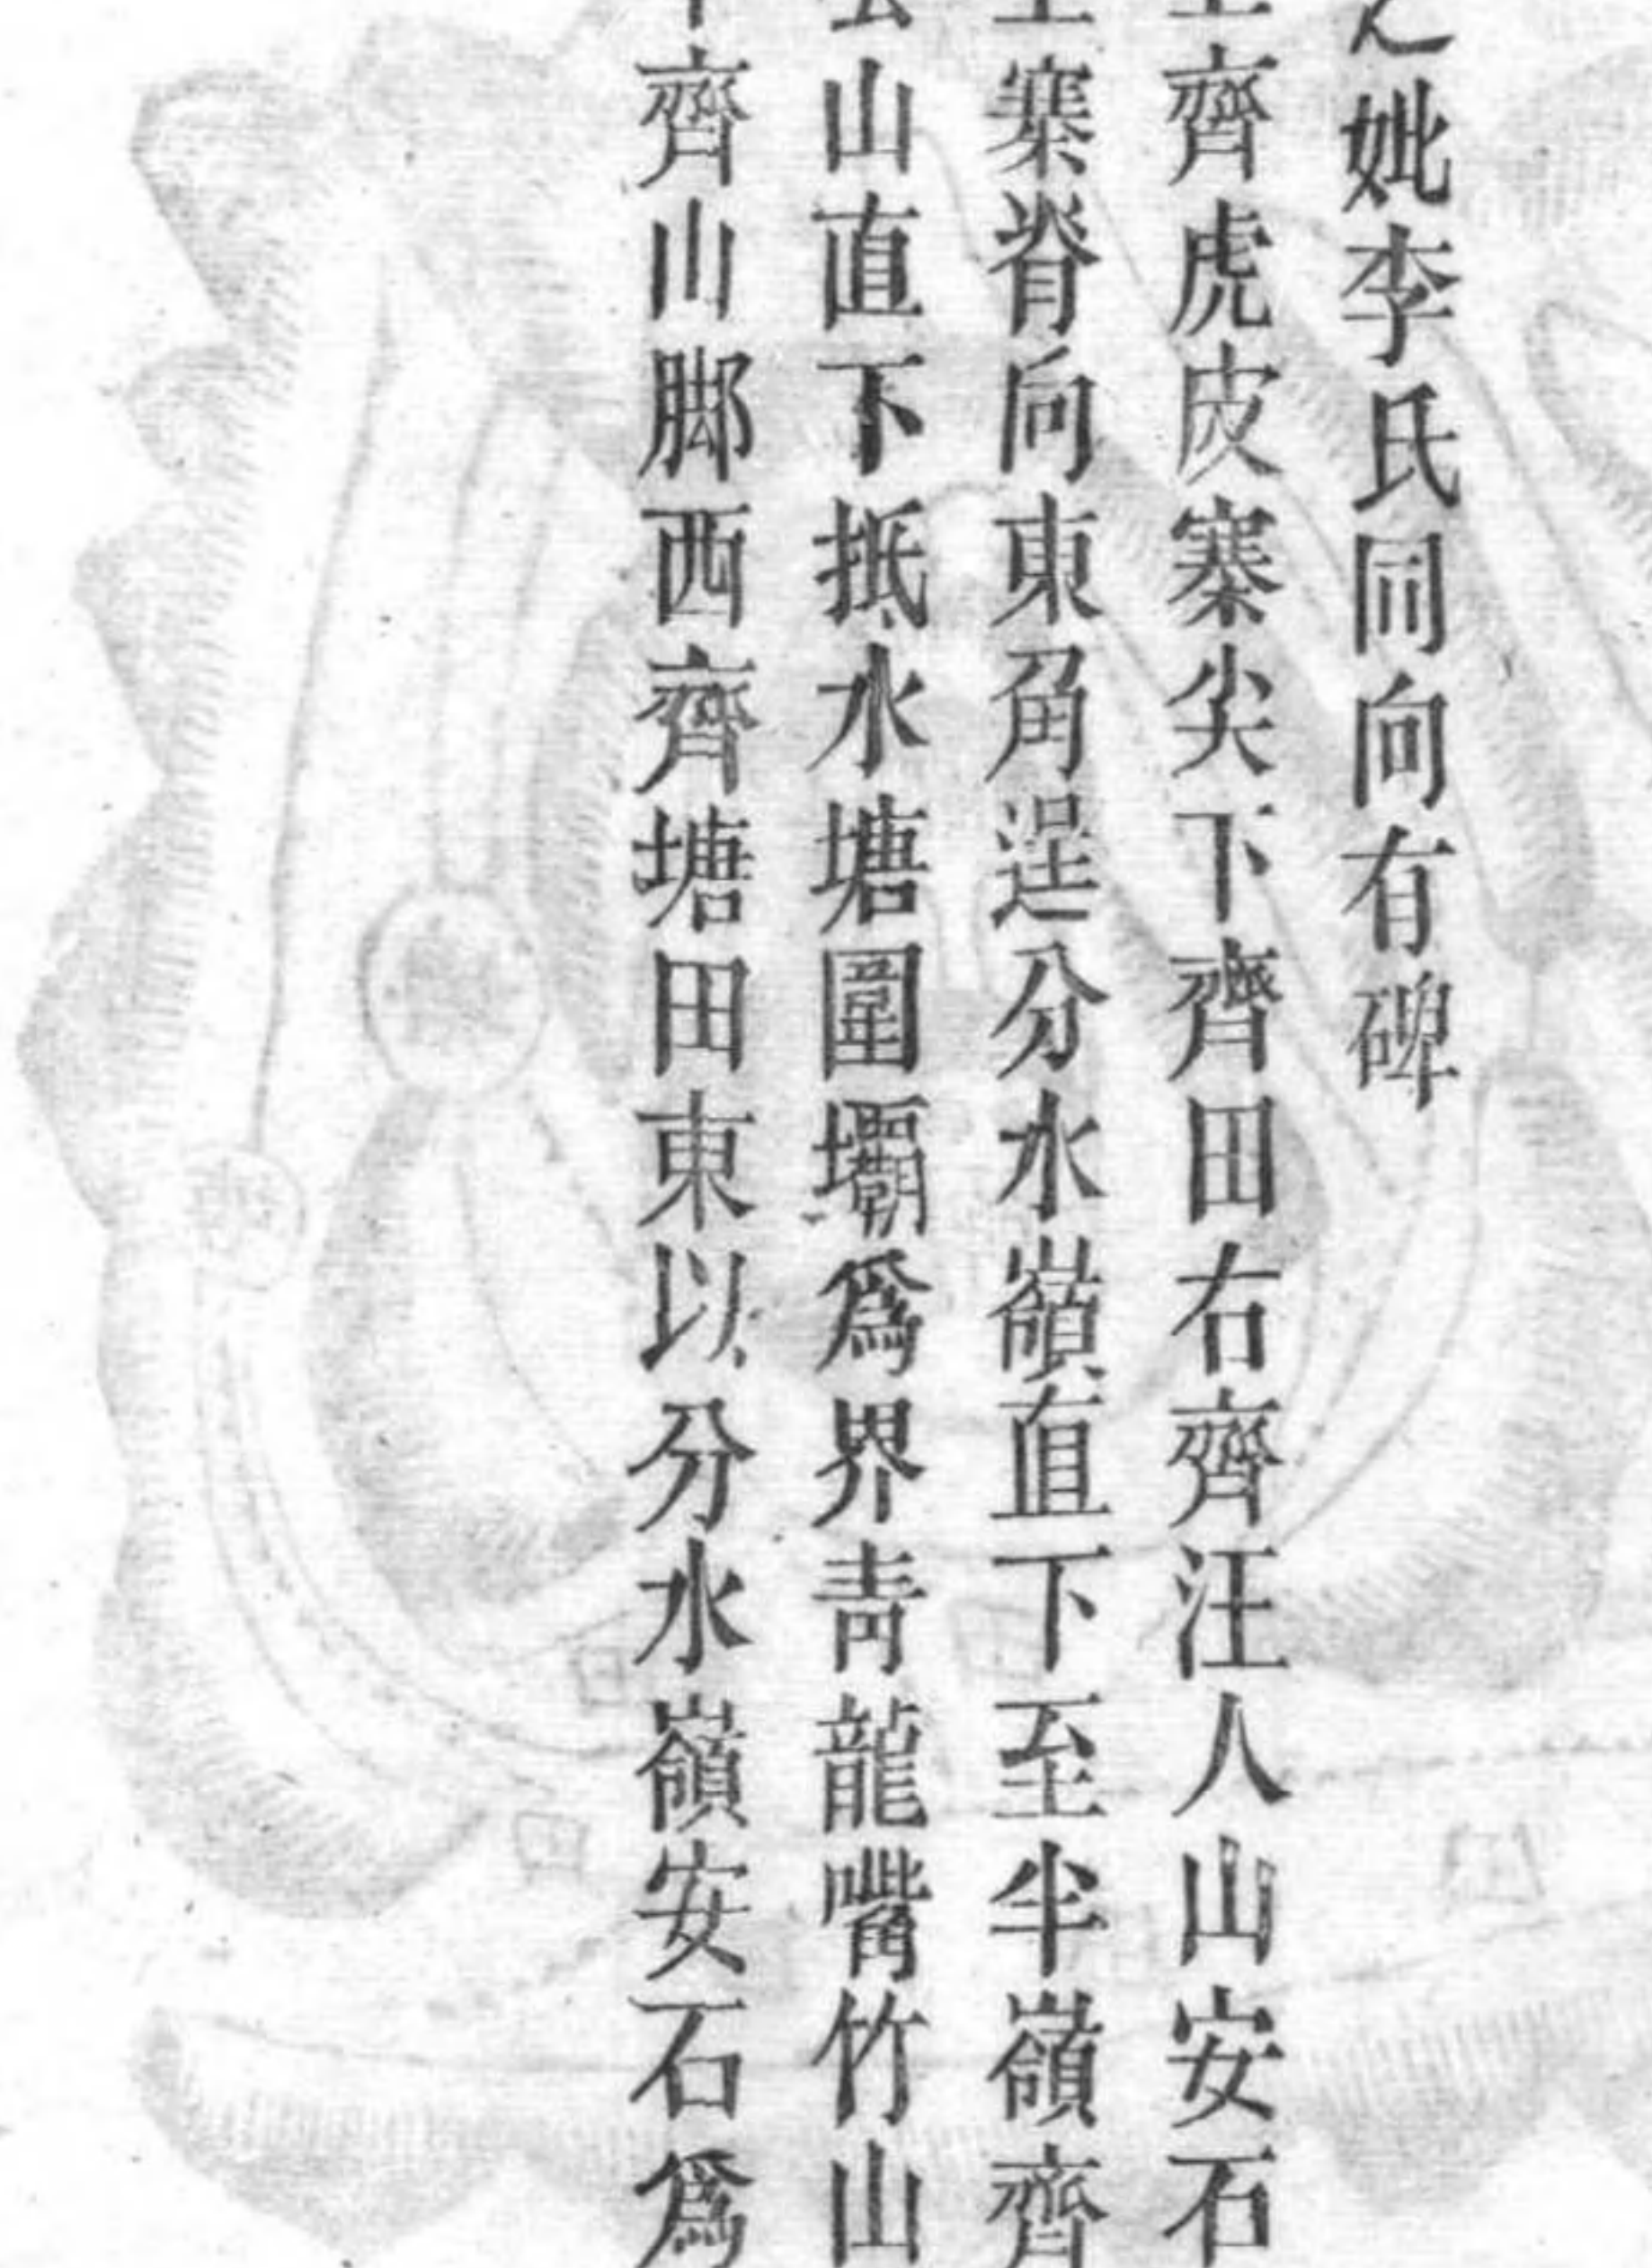 妣李氏同向有碑
齊虎皮寨尖下齊田右齊汪人山安石
寨脊向東角逞分水嶺直下至半嶺齊
山直下抵水塘圍壩爲界青龍嘴竹山
齊山腳西齊塘田東以分水嶺安石爲